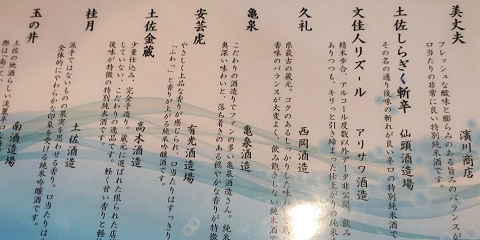 美丈夫
濱川商店
フレッシュな酸味と膨らみのある旨みのバランスが
口当たりの非常に良い特別純米酒です。
土佐しらぎく斬辛
仙頭酒造場
その名の通り後味の斬れの良い辛口の特別純米酒で
文佳人リズール
アリサワ酒造
精米歩合、アルコール度数以外データ非公開。飲み
ありつつも、キリっと引き締まった仕上がりの純米
久礼
西岡酒造
県最古の蔵元。コクのあるしっかりした
香味のバランスが大変よく、飲み飽きしない純米
亀泉
亀泉酒造
こだわりの酒造りでファンの多い亀泉酒造さん。純米
奥深い味わいと、落ち着きのある穏やかな香りが特徴
安芸虎
有光酒造
やさしく上品な香りが感じられ、口当たりはすっきり
「ふわっ」と香りが上がる純米吟醸酒です。
土佐金蔵
高木酒造
少量仕込み、完全手造り。蔵元に選ばれた限られた店
していない、こだわりの逸品です。軽く甘い香りと軽
後味が特徴の特別純米酒です。
桂月
土佐酒造
派手ではないものの果実を思わせる香り。口当たりは
全体的にやわらかな印象を受ける純米吟醸酒です。
玉の井
南酒造場
土佐の地酒らしい淡麗辛